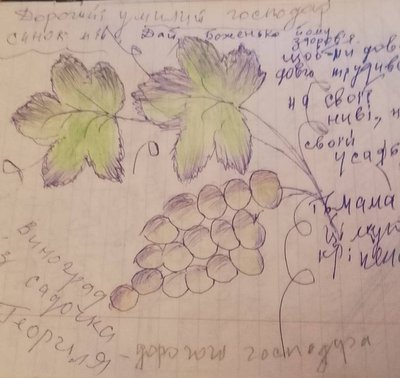 Дорогий умілий господар
синок мій Дай, Боженько йому
здоров'я
щоб ти дов
довго трудивс
на своїй
ниві, н
своїй
усадь
Мама
цілую
кріпень
Виноград
із садочка
Георгія - дорогого господаря